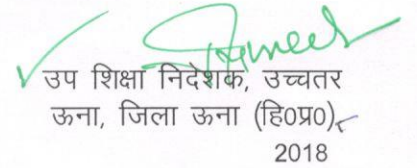 उप शिक्षा निदेशक, उच्चतर
ऊना, जिला ऊना (हि०प्र०)
2018